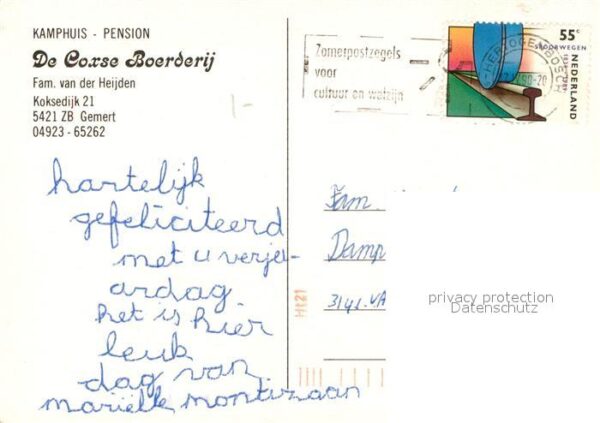 KAMPHUIS - PENSION
De Coxse Boerderij
Fam. van der Heijden
Koksedijk 21
5421 ZB Gemert
04923 - 65262
Zomerpostzegels
voor
cultuur en welzijn
HERTOGENBOSCH
55c
SPOORWEGEN
1839-1989
NEDERLAND
hartelijk
gefeliciteerd
met u verjei-
ardag.
het is hier
leuk
dag van
mariëlle montizaan
Fam.
Damp
3141 VA
Ht21
privacy protection
Datenschutz